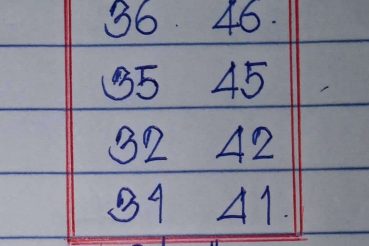 36 46
35 45
32 42
31 41